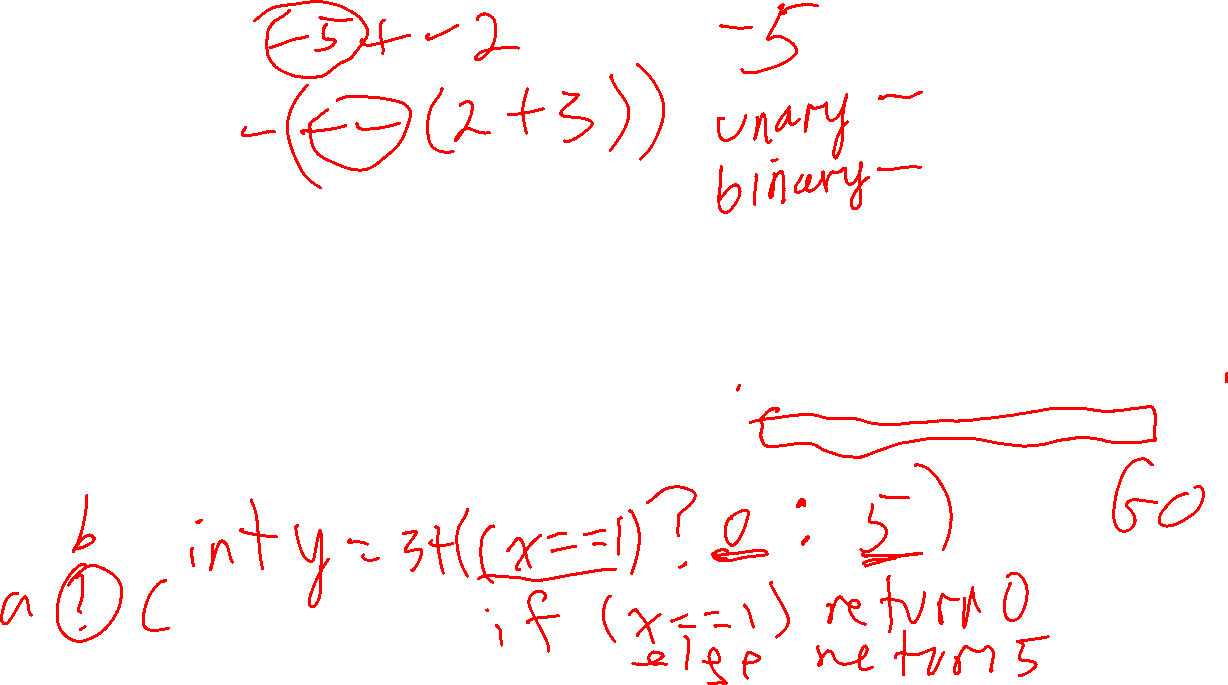 -5 + -2
-5
-(+-(2+3))
unary -
binary -
60
b
int y = 3+((x==1) ? 0 : 5)
a ? c
if (x==1) return 0
else return 5